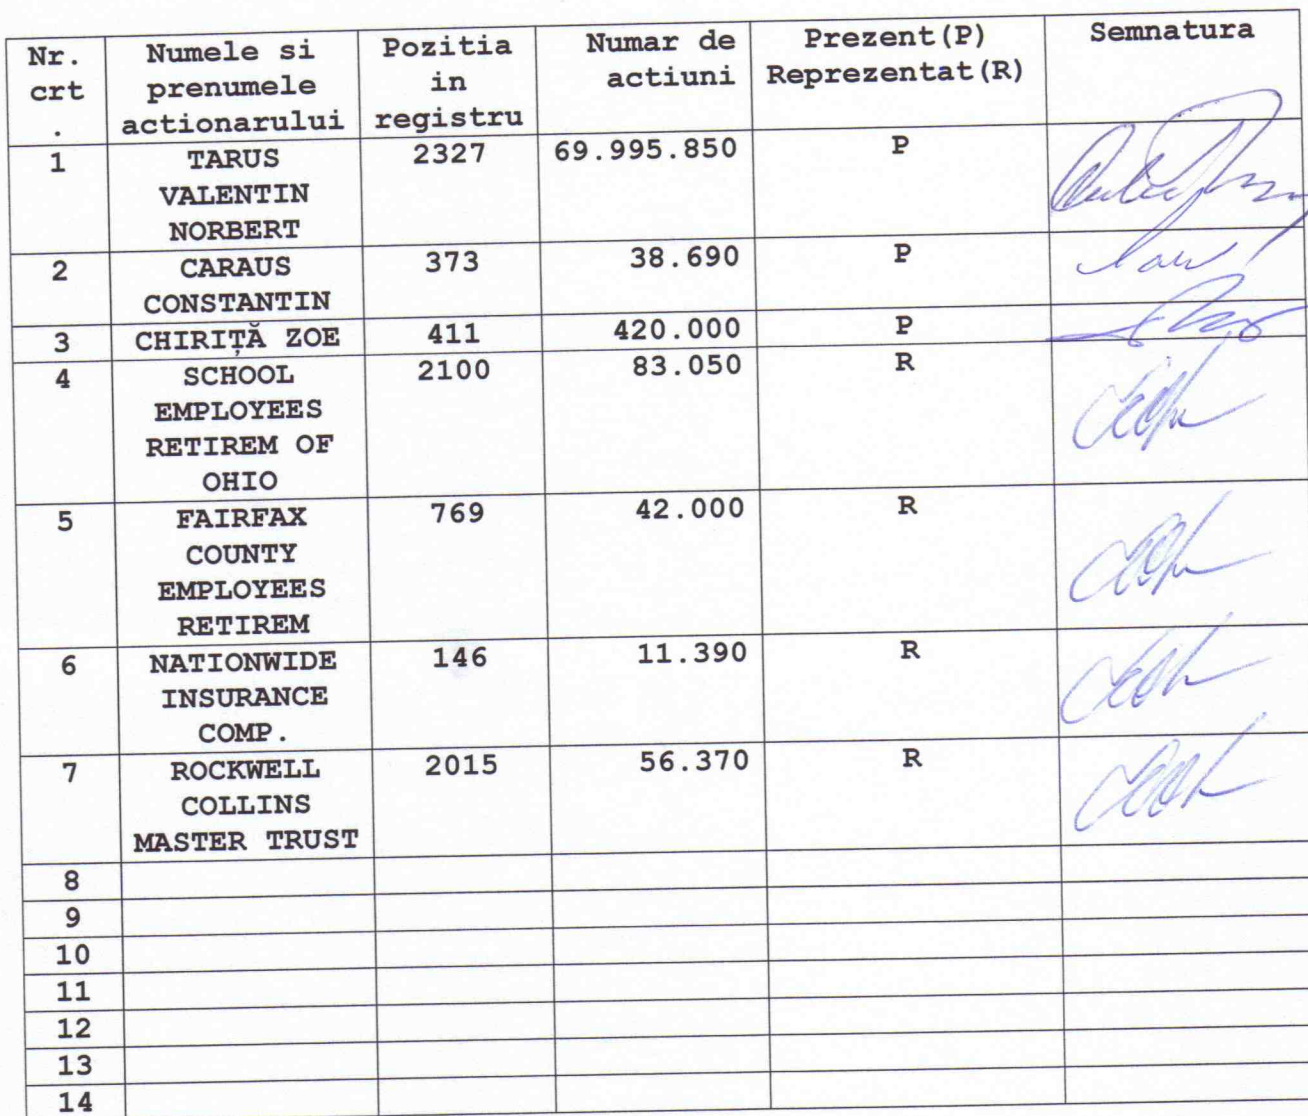 Nr. crt . Numele si prenumele actionarului Pozitia in registru Numar de actiuni Prezent(P) Reprezentat(R) Semnatura
1 TARUS VALENTIN NORBERT 2327 69.995.850 P
2 CARAUS CONSTANTIN 373 38.690 P
3 CHIRIȚĂ ZOE 411 420.000 P
4 SCHOOL EMPLOYEES RETIREM OF OHIO 2100 83.050 R
5 FAIRFAX COUNTY EMPLOYEES RETIREM 769 42.000 R
6 NATIONWIDE INSURANCE COMP. 146 11.390 R
7 ROCKWELL COLLINS MASTER TRUST 2015 56.370 R
8
9
10
11
12
13
14